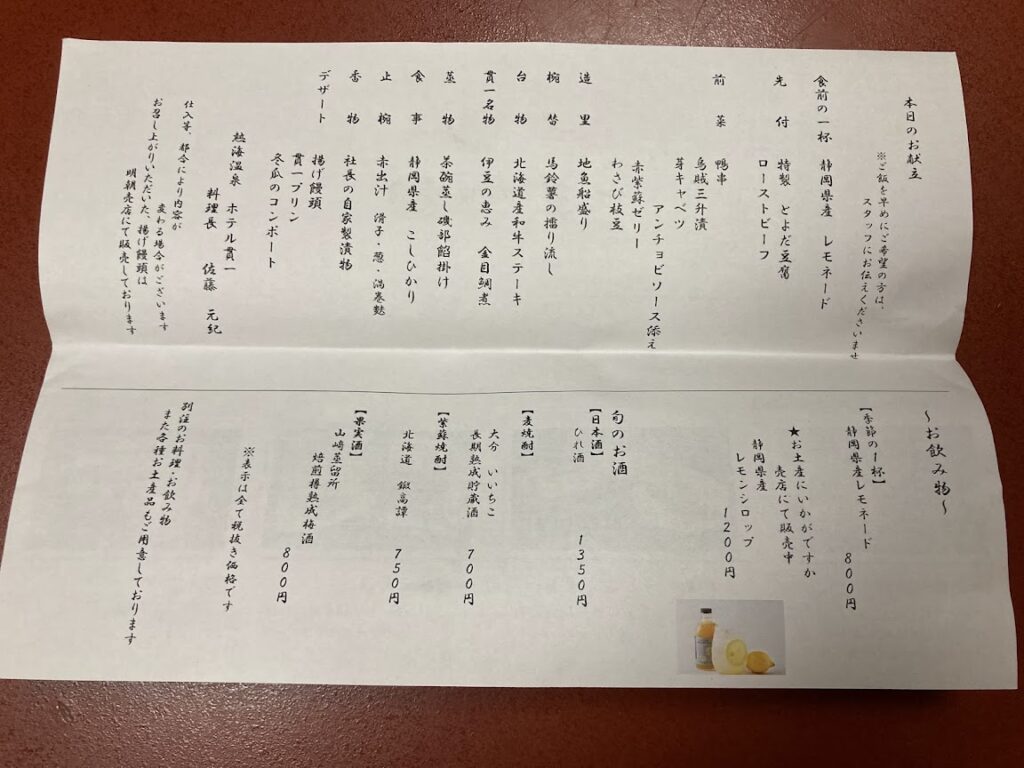 本日のお献立
※ご飯を早めにご希望の方は、
スタッフにお伝えくださいませ
食前の一杯 静岡県産 レモネード
先付 特製 とよだ豆腐
ローストビーフ
前菜 鴨串
烏賊三升漬
芽キャベツ
アンチョビソース添え
赤紫蘇ゼリー
わさび枝豆
造里 地魚船盛り
椀替 馬鈴薯の擂り流し
台物 北海道産和牛ステーキ
貫一名物 伊豆の恵み 金目鯛煮
蒸物 茶碗蒸し磯部餡掛け
食事 静岡県産 こしひかり
止椀 赤出汁 滑子・葱・渦巻麩
香物 社長の自家製漬物
デザート 揚げ饅頭
貫一プリン
冬瓜のコンポート
熱海温泉 ホテル貫一
料理長 佐藤 元紀
仕入等、都合により内容が
変わる場合がございます
お召し上がりいただいた、揚げ饅頭は
明朝売店にて販売しております
～お飲み物～
【季節の一杯】
静岡県産レモネード 800円
★お土産にいかがですか
売店にて販売中
静岡県産
レモンシロップ
1200円
旬のお酒
【日本酒】
ひれ酒 1350円
【麦焼酎】
大分 いいちこ
長期熟成貯蔵酒 700円
【紫蘇焼酎】
北海道 鍛高譚 750円
【果実酒】
山崎蒸留所
焙煎樽熟成梅酒
800円
※表示は全て税抜き価格です
別注のお料理・お飲み物
また各種お土産品もご用意しております